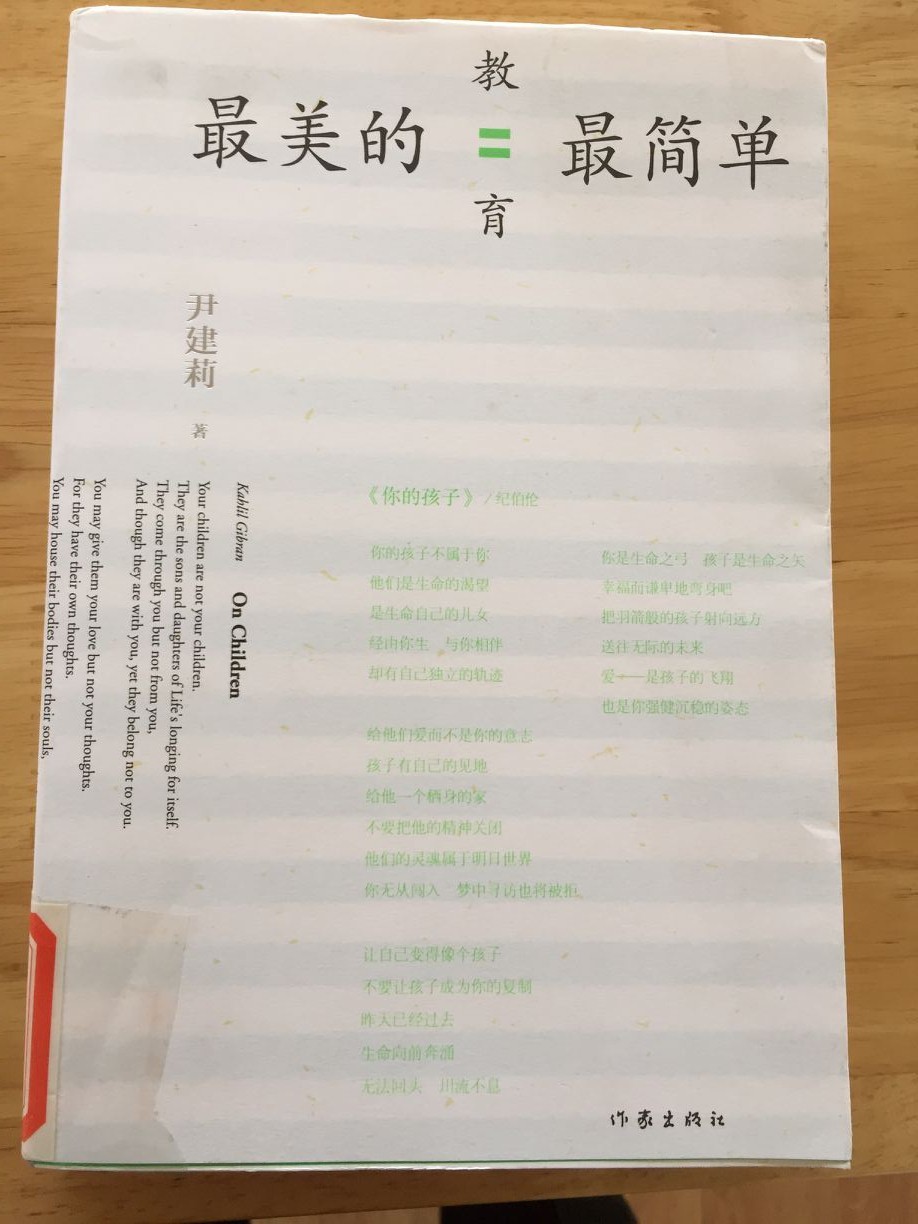 最美的教育=最简单
尹建莉 著
Kahlil Gibran On Children
Your children are not your children.
They are the sons and daughters of Life's longing for itself.
They come through you but not from you,
And though they are with you, yet they belong not to you.
You may give them your love but not your thoughts.
For they have their own thoughts.
You may house their bodies but not their souls,
《你的孩子》/纪伯伦
你的孩子不属于你
他们是生命的渴望
是生命自己的儿女
经由你生 与你相伴
却有自己独立的轨迹
给他们爱而不是你的意志
孩子有自己的见地
给他一个栖身的家
不要把他的精神关闭
他们的灵魂属于明日世界
你无从闯入 梦中寻访也将被拒
让自己变得像个孩子
不要让孩子成为你的复制
昨天已经过去
生命向前奔涌
无法回头 川流不息
你是生命之弓 孩子是生命之矢
幸福而谦卑地弯身吧
把羽箭般的孩子射向远方
送往无际的未来
爱——是孩子的飞翔
也是你强健沉稳的姿态
作家出版社